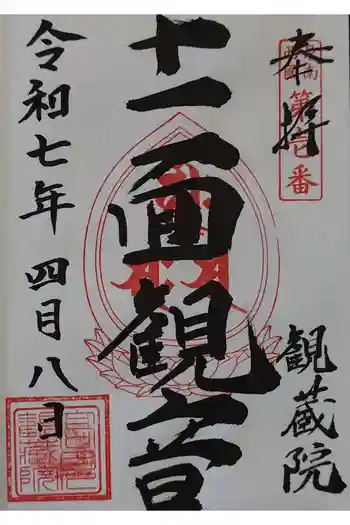 奉拝
第壱番
十一面観音
観蔵院
令和七年四月八日